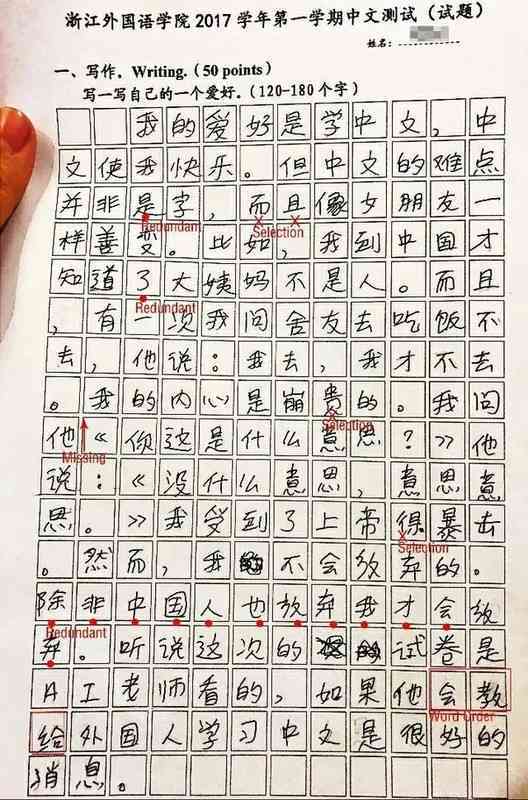 浙江外国语学院 2017 学年第一学期中文测试（试题）
姓名：
一、写作。Writing.（50 points）
写一写自己的一个爱好。（120-180 个字）
我的爱好是学中文，中
文使我快乐。但中文的难点
并非是字，而且像女朋友一
Redundant Selection
样善变。比如，我到中国才
知道了大姨妈不是人。而且
Redundant
，有一次我问舍友去吃饭不
去，他说：我去，我才不去
。我的内心是崩贵的。我问
Selection
他《你这是什么意思？》他
Missing
说：《没什么意思，意思意
思。》我受到了上帝得暴击
Selection
。然而，我不会放弃的。
除非中国人也放弃我才会放
Redundant
弃。听说这次的试卷是
AI老师看的，如果他会教
Word Order
给外国人学习中文是很好的
消息。